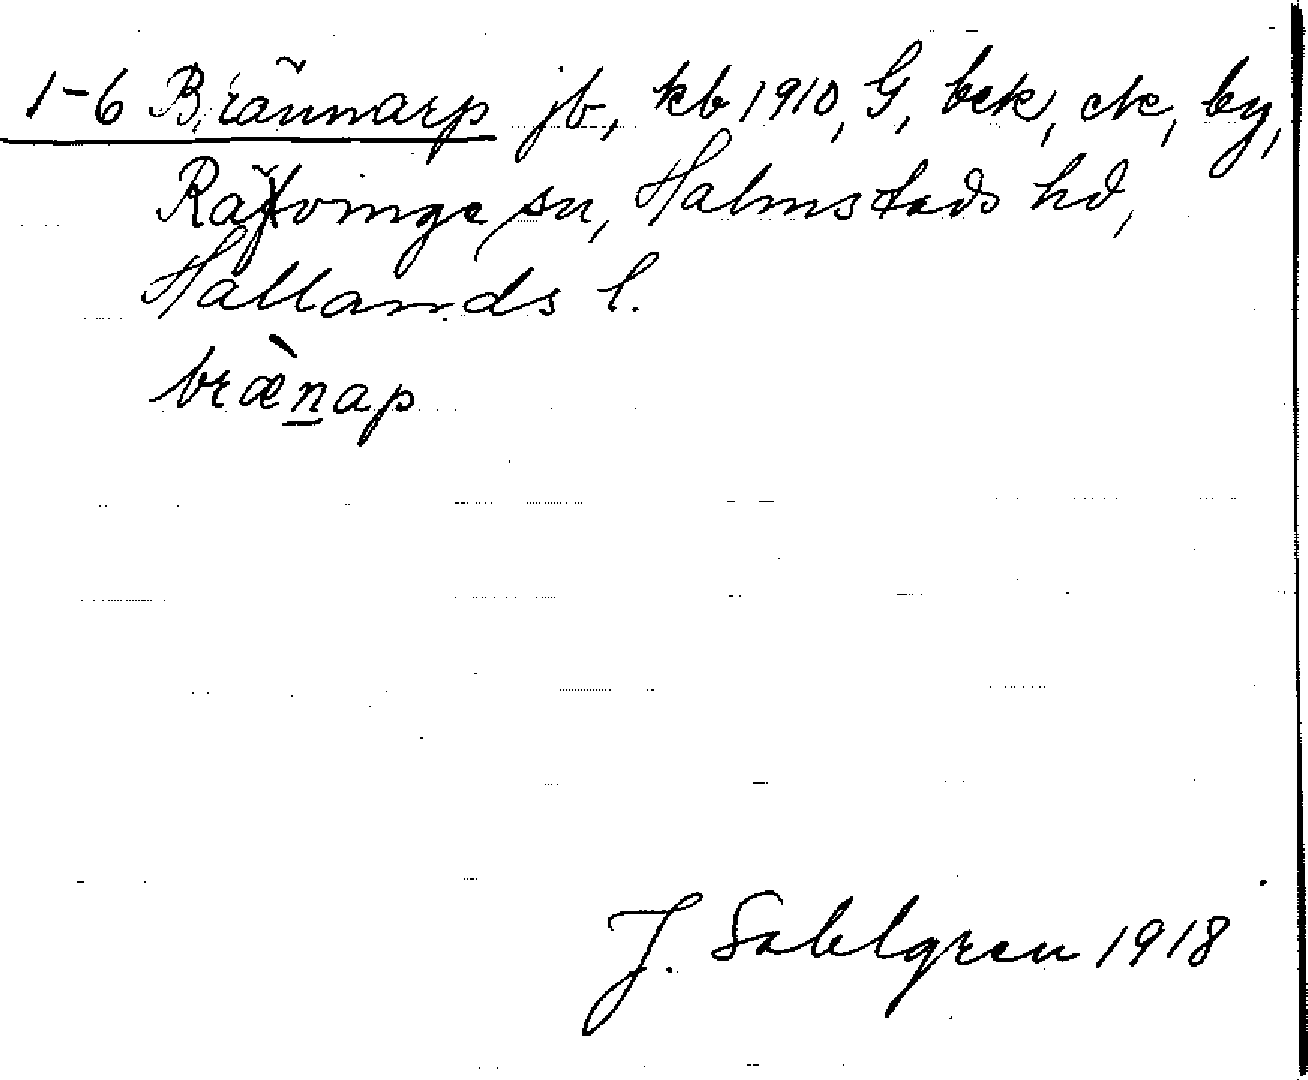 1-6 Brännarp jb, kb 1910, G, bek, ek, by,
Räfvinge sn, Halmstads hd,
Hallands l.
brænap
J. Sahlgren 1918